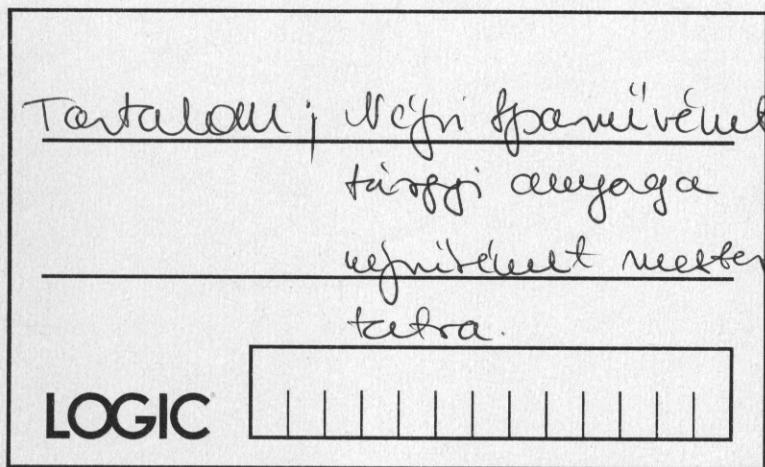 Tartalom; Népi Iparművészet
tárgyi anyaga
népművészet mester
LOGIC